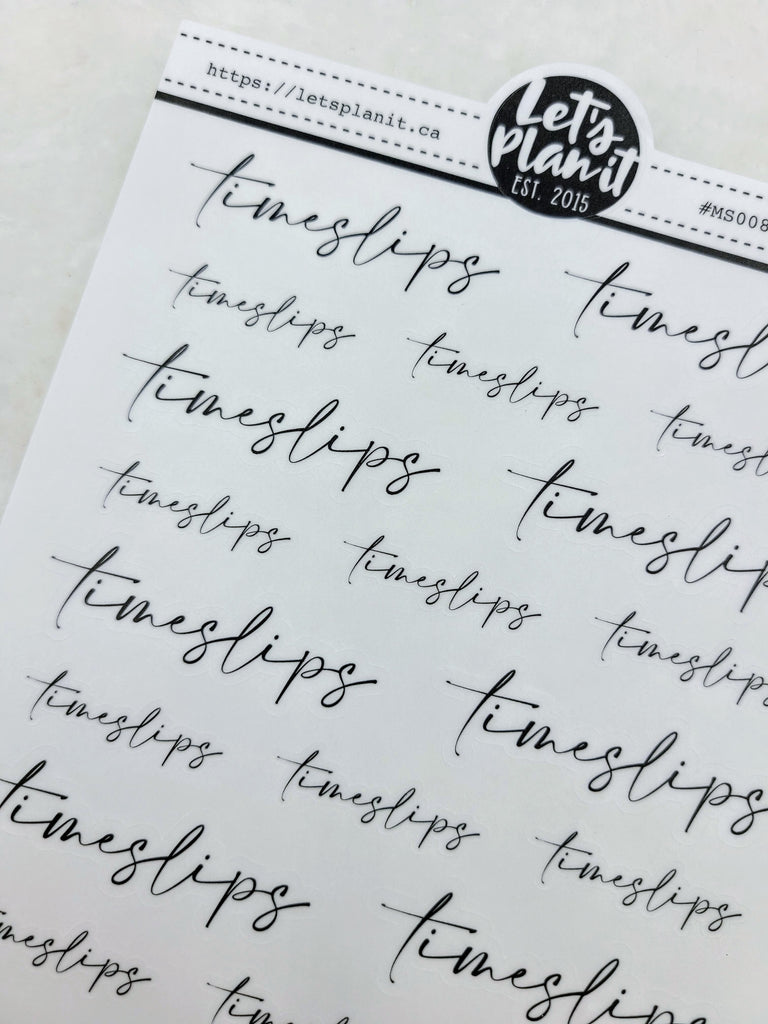 https://letsplanit.ca
Let's
Plan it
EST. 2015
#MS008
timeslips timesl
timeslips timeslips timesl
timeslips timeslip
timeslips timeslips timeslips
timeslips timeslips
timeslips timeslips timeslips
timeslips timeslips
meslips timeslips